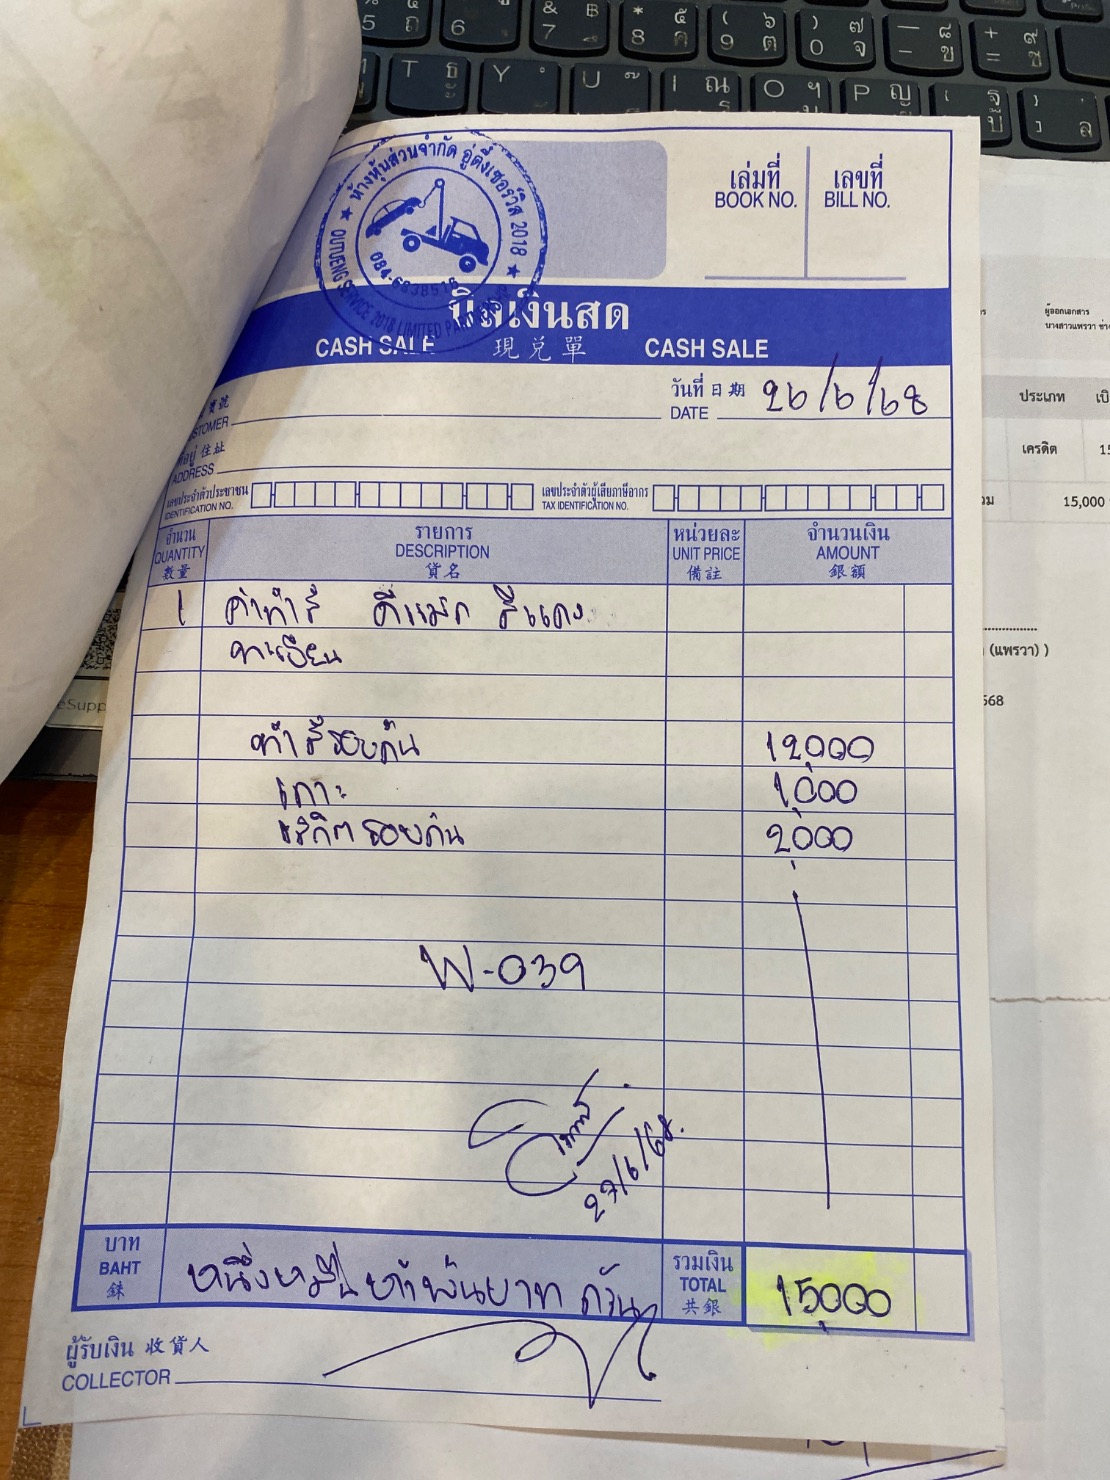 ห้างหุ้นส่วนจำกัด อู่ตึ๋งเซอร์วิส 2018
OUTUENG SERVICE 2018 LIMITED PARTNERSHIP
เล่มที่ เลขที่
BOOK NO. BILL NO.
บิลเงินสด
CASH SALE 現兌單 CASH SALE
วันที่ 日期 26/6/68
DATE
ADDRESS
เลขประจำตัวประชาชน เลขประจำตัวผู้เสียภาษีอากร
IDENTIFICATION NO. TAX IDENTIFICATION NO.
จำนวน รายการ หน่วยละ จำนวนเงิน
QUANTITY DESCRIPTION UNIT PRICE AMOUNT
數量 貨名 備註 銀額
1 ค่าทำสี ดีแมก สีแดง
ทะเบียน
ทำสีรอบคัน 12,000
เคาะ 1,000
รอบคัน 2,000
W-039
27/6/68
บาท หนึ่งหมื่นห้าพันบาทถ้วน รวมเงิน 15,000
BAHT TOTAL
銖 共銀
ผู้รับเงิน 收貨人
COLLECTOR
ผู้ออกเอกสาร
ประเภท
เครดิต
15,000
(แพรวา) )
568